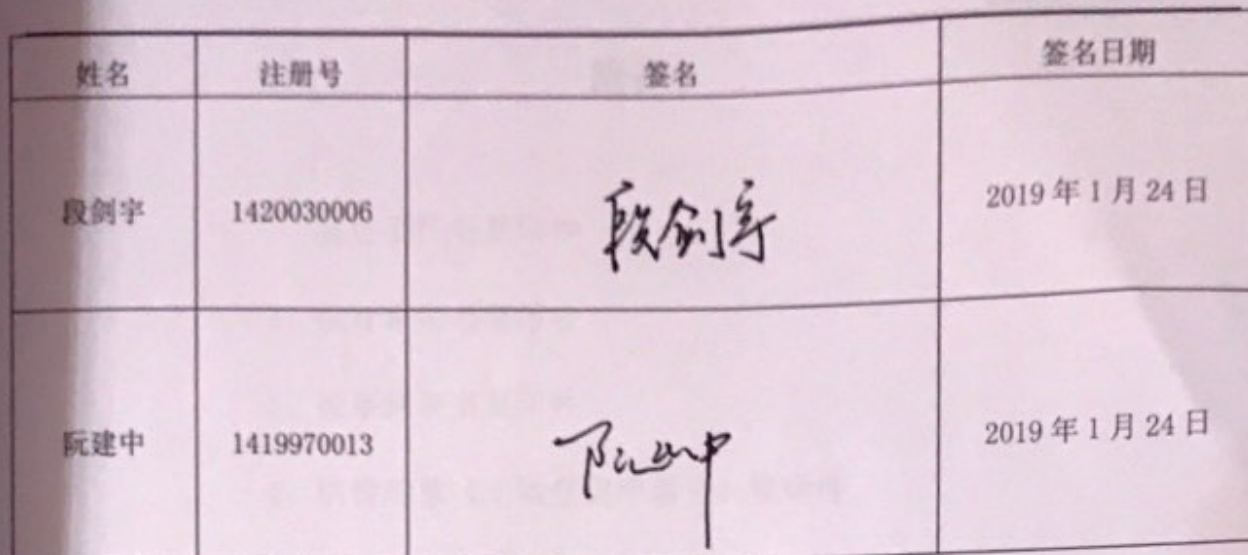 姓名 注册号 签名 签名日期
段剑宇 1420030006 段剑宇 2019年1月24日
阮建中 1419970013 阮建中 2019年1月24日